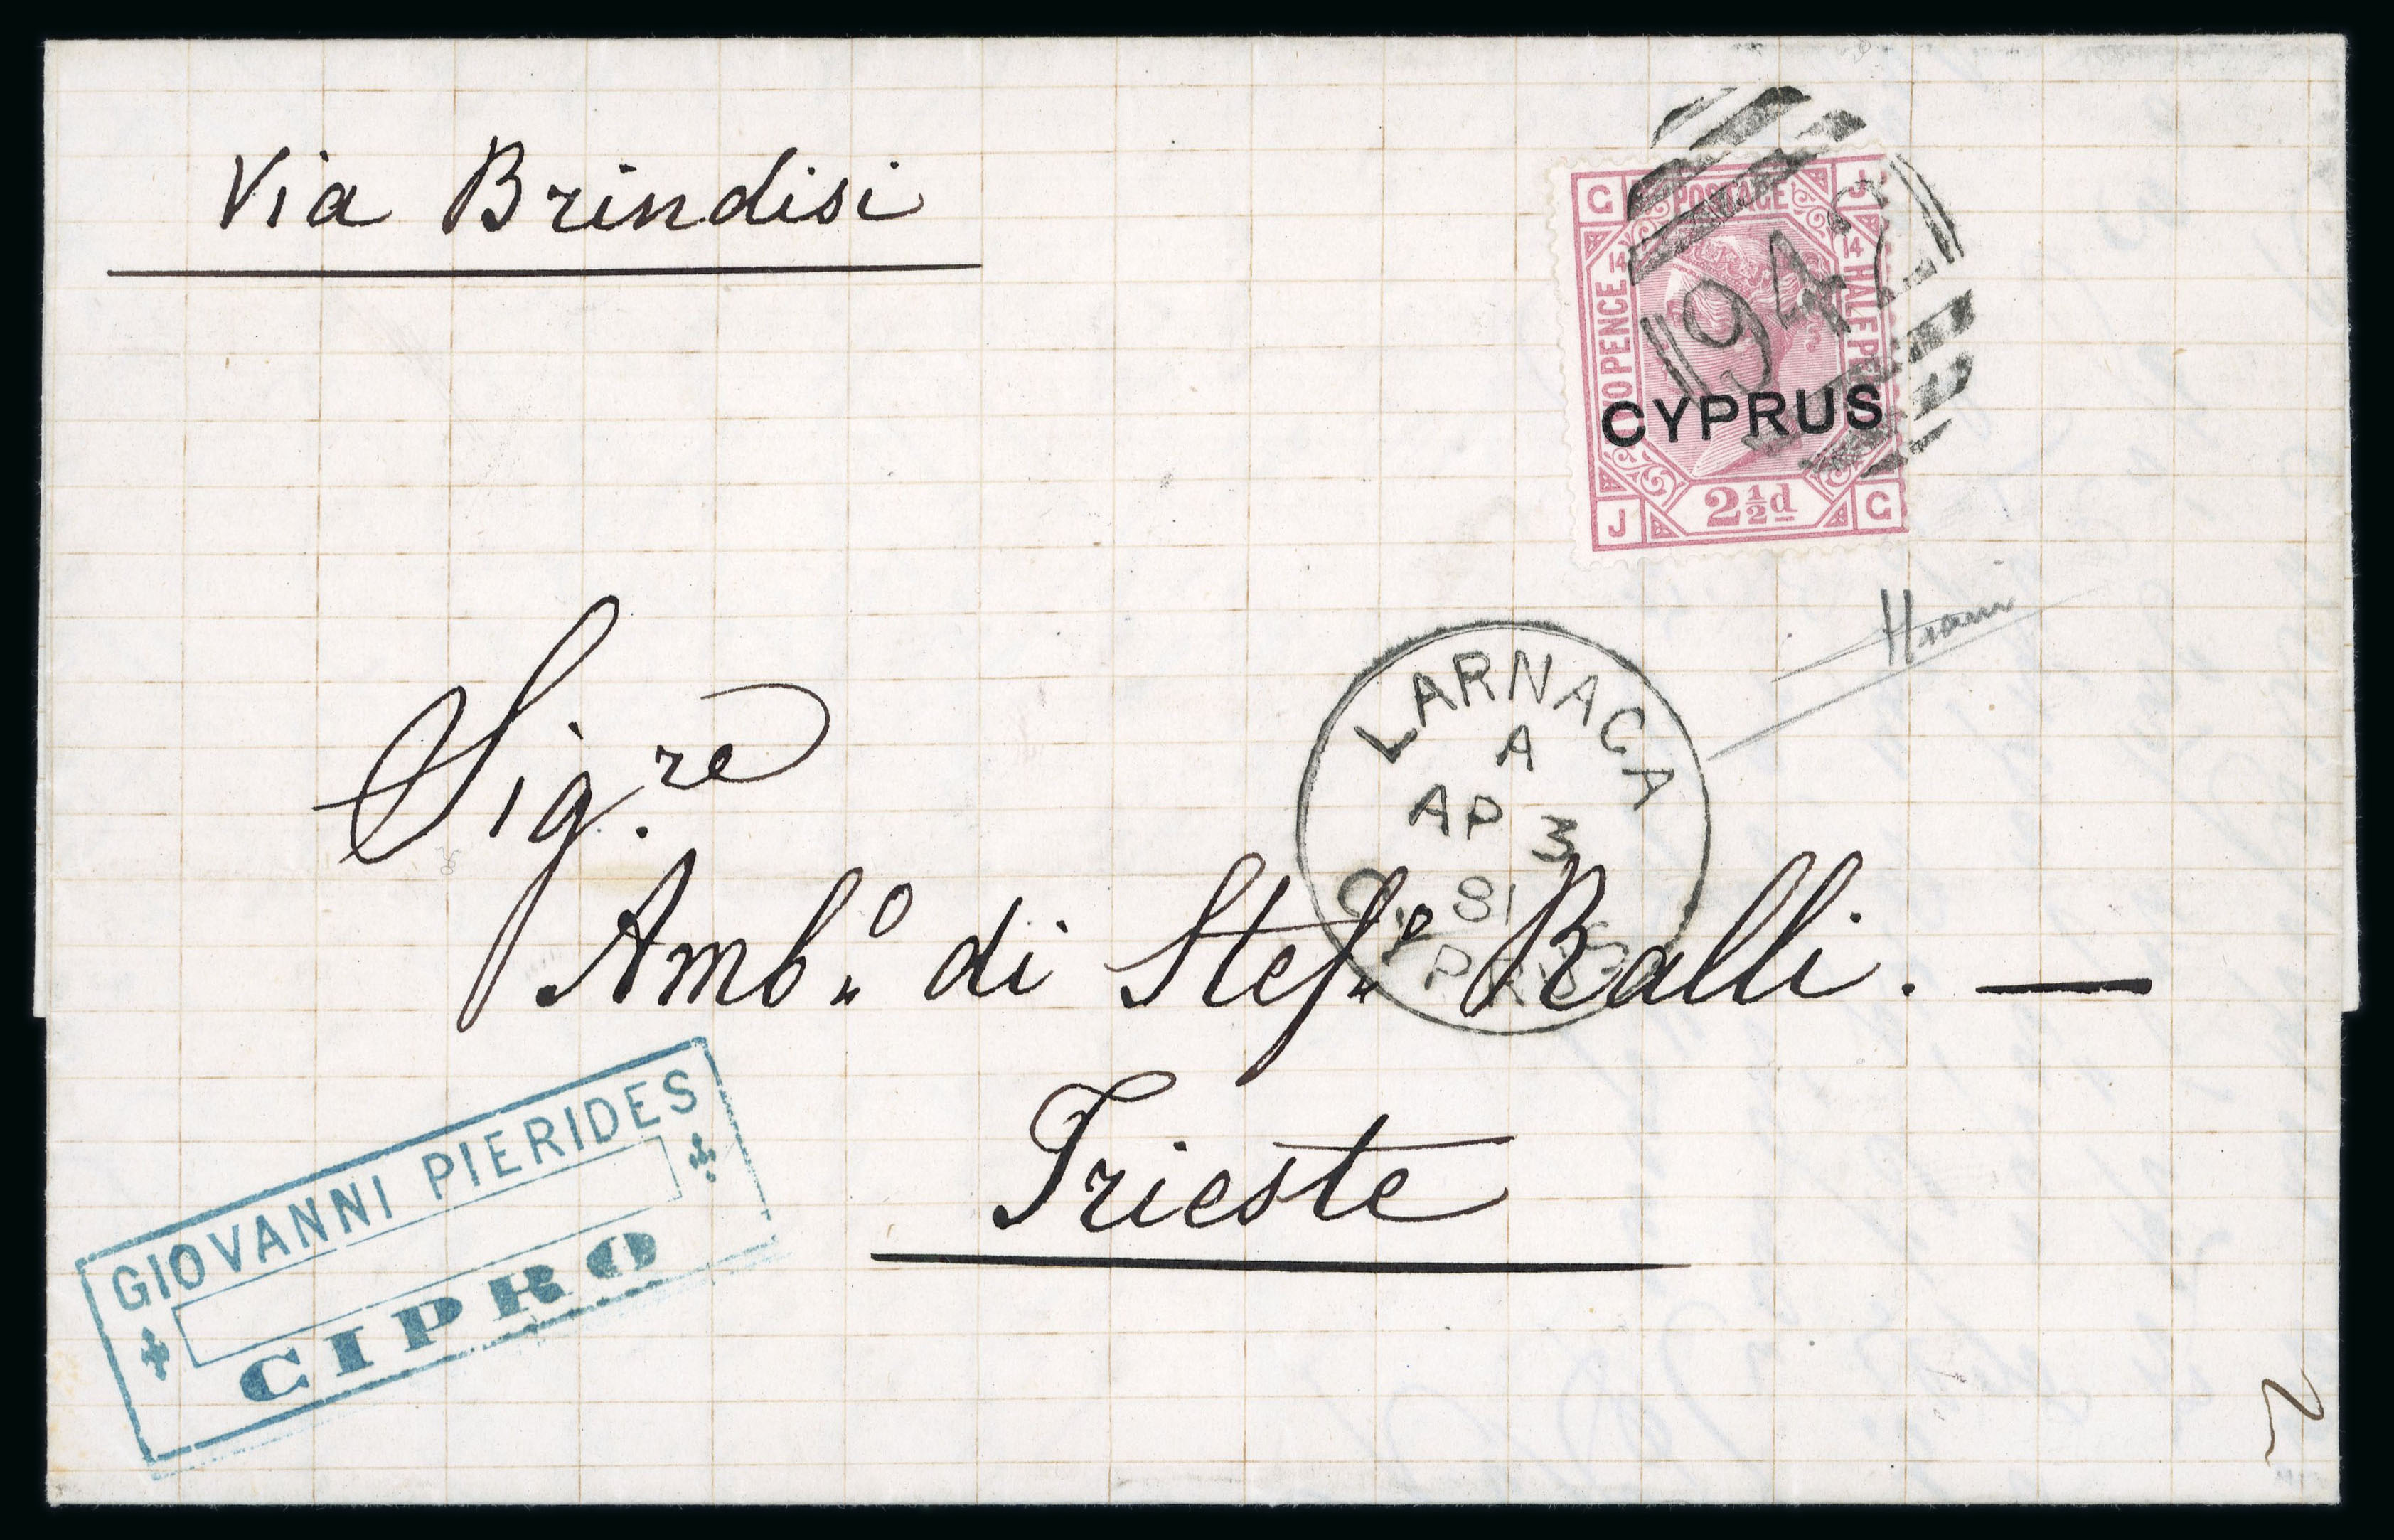 Via Brindisi
G POSTAGE J
14 14
TWO PENCE HALF PE
942
CYPRUS
J 2½d G
LARNACA
A
AP 3
81
CYPRUS
Sig.re
Amb.o di Stef.o Ralli. —
Trieste
GIOVANNI PIERIDES
CIPRO
2